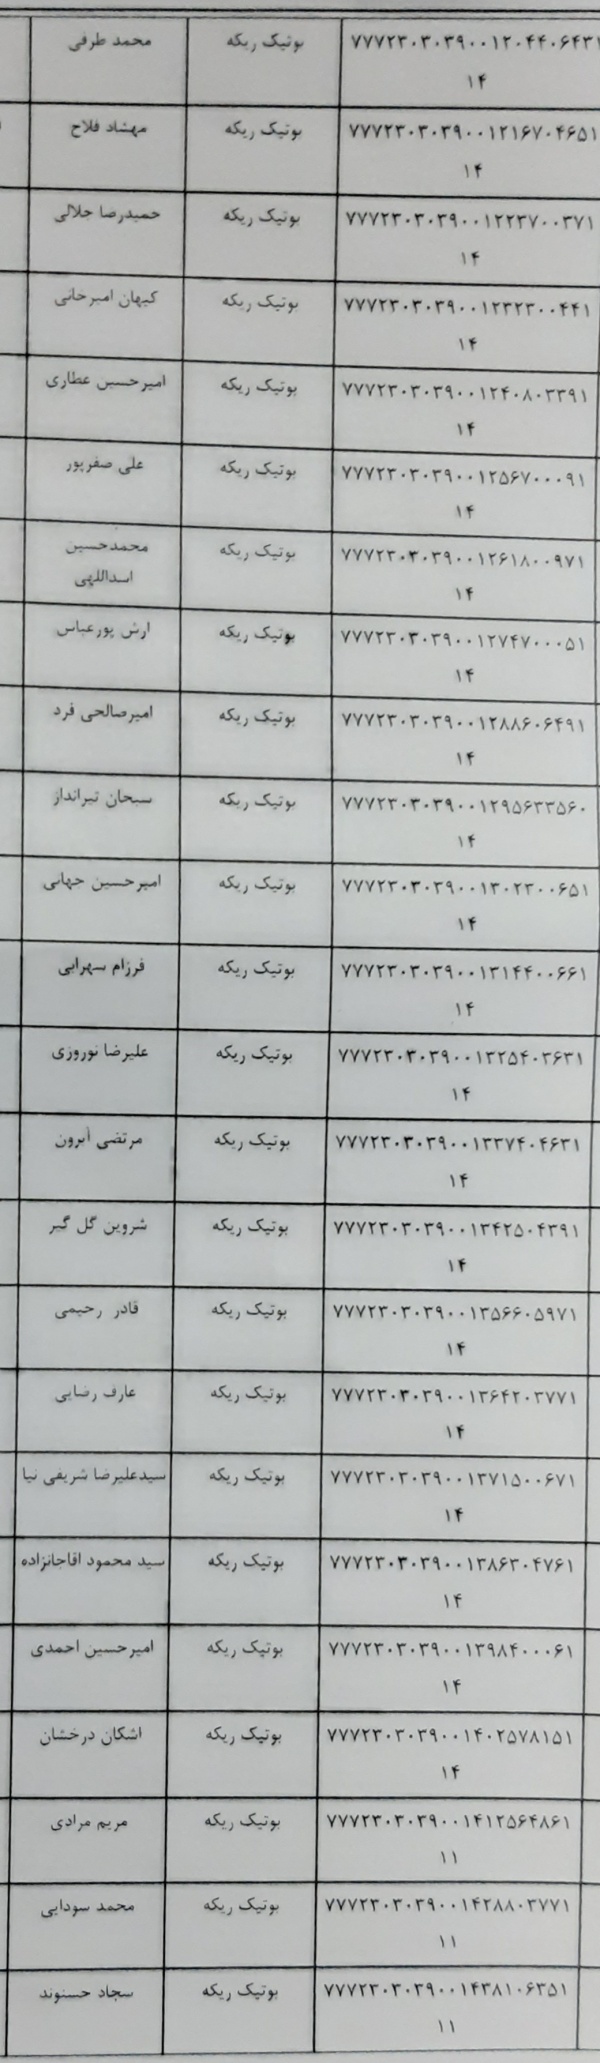 ۷۷۷۲۳۰۳۰۳۹۰۰۱۲۰۴۴۰۶۴۳۱ بوتیک ریکه محمد طرفی
۱۴
۷۷۷۲۳۰۳۰۳۹۰۰۱۲۱۶۷۰۴۶۵۱ بوتیک ریکه مهشاد فلاح
۱۴
۷۷۷۲۳۰۳۰۳۹۰۰۱۲۲۳۷۰۰۳۷۱ بوتیک ریکه حمیدرضا جلالی
۱۴
۷۷۷۲۳۰۳۰۳۹۰۰۱۲۳۲۳۰۰۴۴۱ بوتیک ریکه کیهان امیرخانی
۱۴
۷۷۷۲۳۰۳۰۳۹۰۰۱۲۴۰۸۰۳۳۹۱ بوتیک ریکه امیرحسین عطاری
۱۴
۷۷۷۲۳۰۳۰۳۹۰۰۱۲۵۶۷۰۰۰۹۱ بوتیک ریکه علی صفرپور
۱۴
۷۷۷۲۳۰۳۰۳۹۰۰۱۲۶۱۸۰۰۹۷۱ بوتیک ریکه محمدحسین
۱۴ اسداللهی
۷۷۷۲۳۰۳۰۳۹۰۰۱۲۷۴۷۰۰۰۵۱ بوتیک ریکه ارش پورعباس
۱۴
۷۷۷۲۳۰۳۰۳۹۰۰۱۲۸۸۶۰۶۴۹۱ بوتیک ریکه امیرصالحی فرد
۱۴
۷۷۷۲۳۰۳۰۳۹۰۰۱۲۹۵۶۳۳۵۶۰ بوتیک ریکه سبحان تیرانداز
۱۴
۷۷۷۲۳۰۳۰۳۹۰۰۱۳۰۲۳۰۰۶۵۱ بوتیک ریکه امیرحسین جهانی
۱۴
۷۷۷۲۳۰۳۰۳۹۰۰۱۳۱۴۴۰۰۶۶۱ بوتیک ریکه فرزام سهرابی
۱۴
۷۷۷۲۳۰۳۰۳۹۰۰۱۳۲۵۴۰۳۶۳۱ بوتیک ریکه علیرضا نوروزی
۱۴
۷۷۷۲۳۰۳۰۳۹۰۰۱۳۳۷۴۰۴۶۳۱ بوتیک ریکه مرتضی آبرون
۱۴
۷۷۷۲۳۰۳۰۳۹۰۰۱۳۴۲۵۰۴۳۹۱ بوتیک ریکه شروین گل گیر
۱۴
۷۷۷۲۳۰۳۰۳۹۰۰۱۳۵۶۶۰۵۹۷۱ بوتیک ریکه قادر رحیمی
۱۴
۷۷۷۲۳۰۳۰۳۹۰۰۱۳۶۴۲۰۳۷۷۱ بوتیک ریکه عارف رضایی
۱۴
۷۷۷۲۳۰۳۰۳۹۰۰۱۳۷۱۵۰۰۶۷۱ بوتیک ریکه سیدعلیرضا شریفی نیا
۱۴
۷۷۷۲۳۰۳۰۳۹۰۰۱۳۸۶۳۰۴۷۶۱ بوتیک ریکه سید محمود اقاجانزاده
۱۴
۷۷۷۲۳۰۳۰۳۹۰۰۱۳۹۸۴۰۰۰۶۱ بوتیک ریکه امیرحسین احمدی
۱۴
۷۷۷۲۳۰۳۰۳۹۰۰۱۴۰۲۵۷۸۱۵۱ بوتیک ریکه اشکان درخشان
۱۴
۷۷۷۲۳۰۳۰۳۹۰۰۱۴۱۲۵۶۴۸۶۱ بوتیک ریکه مریم مرادی
۱۱
۷۷۷۲۳۰۳۰۳۹۰۰۱۴۲۸۸۰۳۷۷۱ بوتیک ریکه محمد سودایی
۱۱
۷۷۷۲۳۰۳۰۳۹۰۰۱۴۳۸۱۰۶۳۵۱ بوتیک ریکه سجاد حسنوند
۱۱